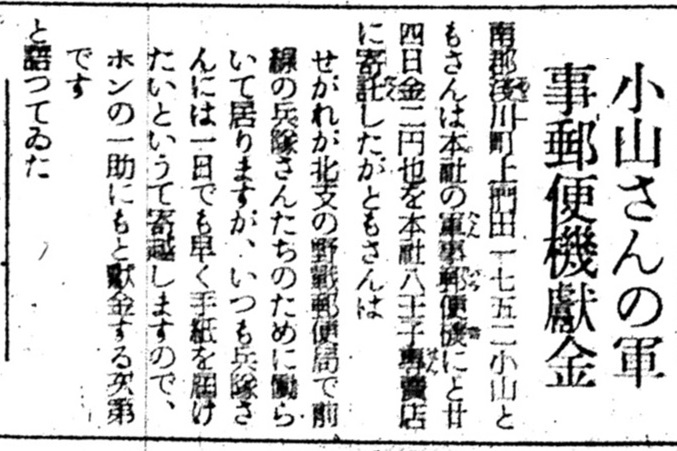 小山さんの軍
事郵便機献金
南郡淺川町上椚田一七五二小山と
もさんは本社の軍事郵便機にと廿
四日金二円也を本社八王子専賣店
に寄託したがともさんは
せがれが北支の野戰郵便局で前
線の兵隊さんたちのために働ら
いて居りますが、いつも兵隊さ
んには一日でも早く手紙を届け
たいというて寄越しますので、
ホンの一助にもと献金する次第
です
と語つてゐた